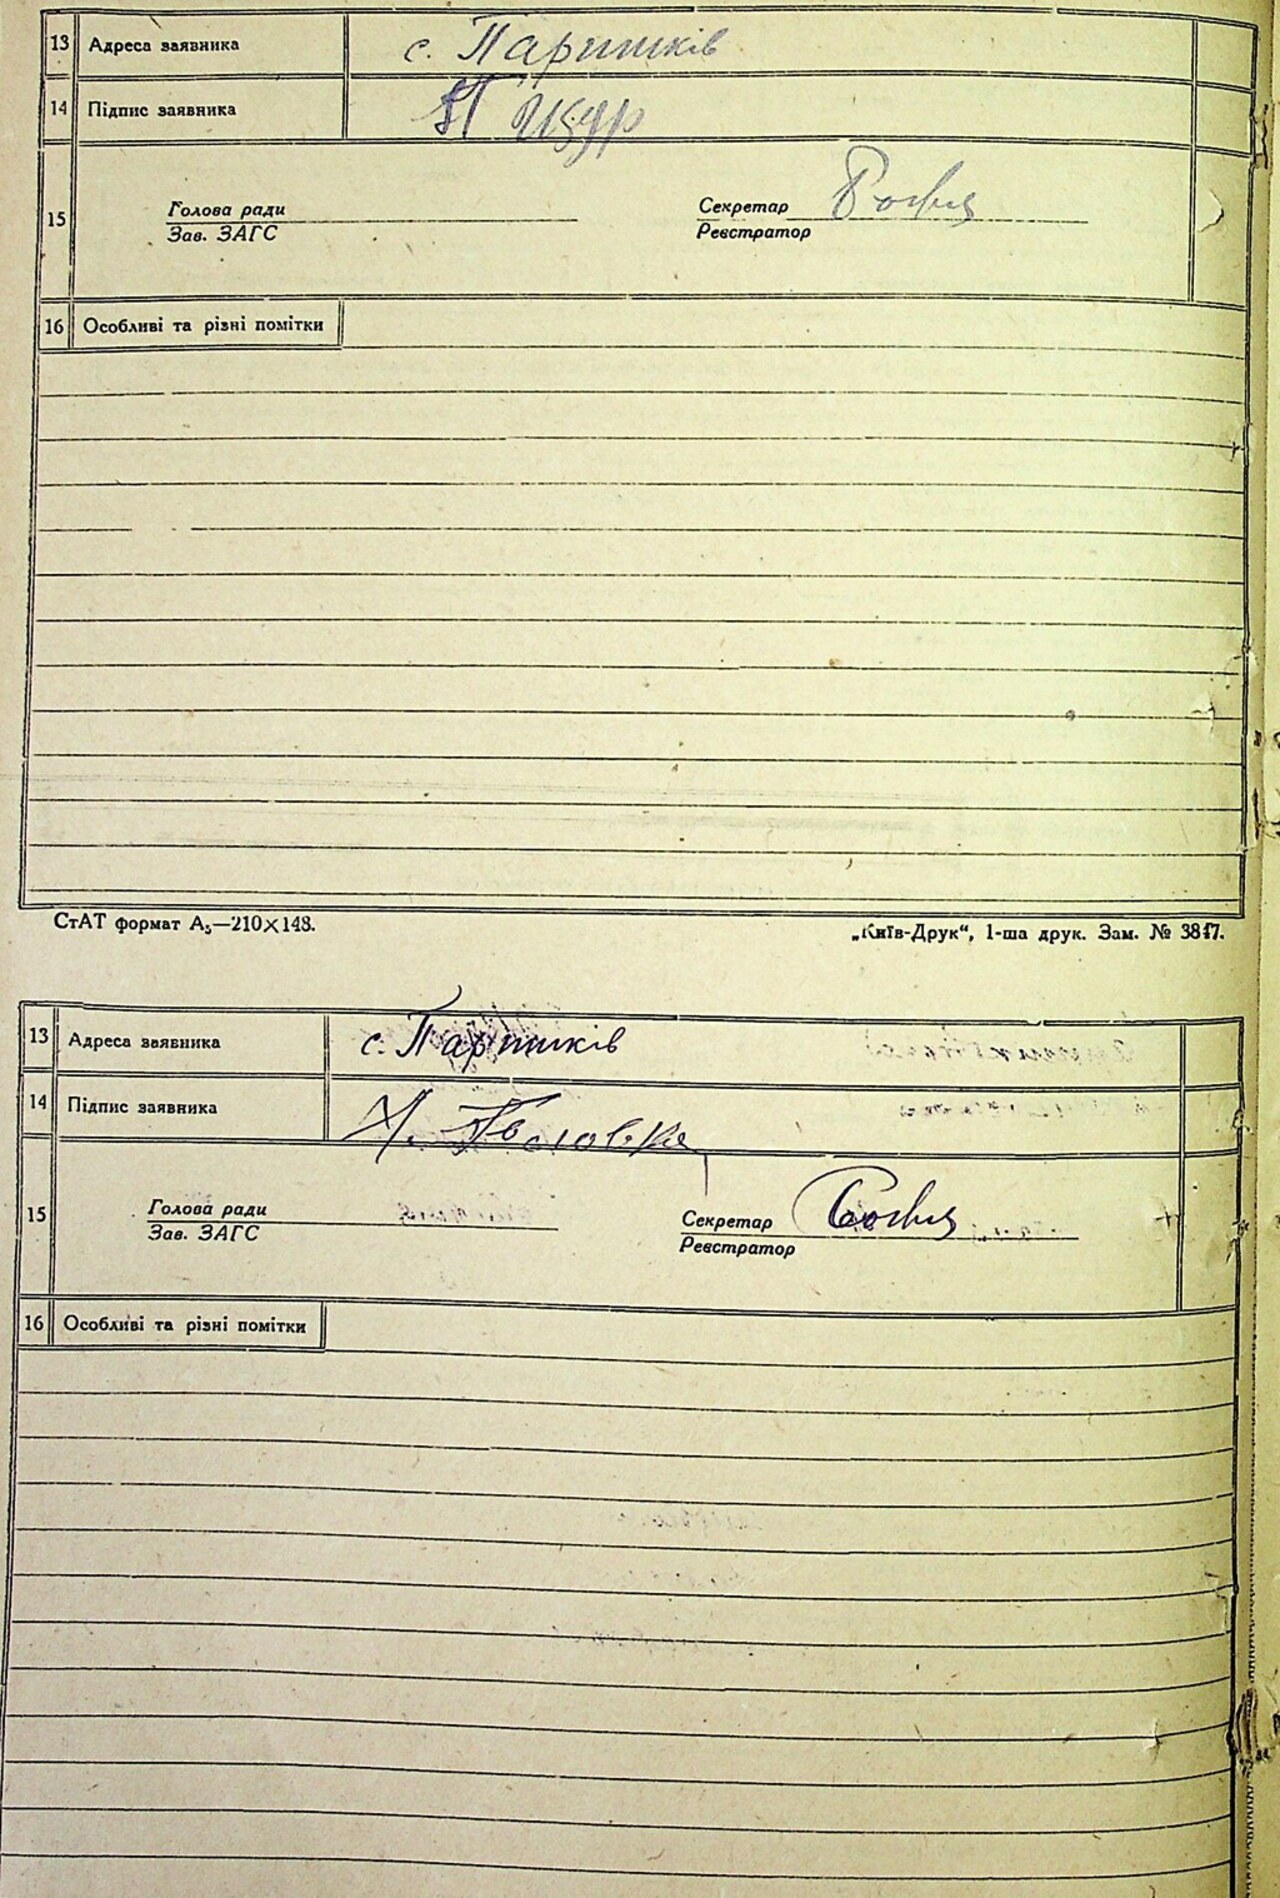 13 Адреса заявника с. Паришків
14 Підпис заявника
15 Голова ради Секретар
Зав. ЗАГС Реєстратор
16 Особливі та різні помітки
СтАТ формат А₅—210×148. „Київ-Друк“, 1-ша друк. Зам. № 3817.
13 Адреса заявника с. Паришків
14 Підпис заявника
15 Голова ради Секретар
Зав. ЗАГС Реєстратор
16 Особливі та різні помітки